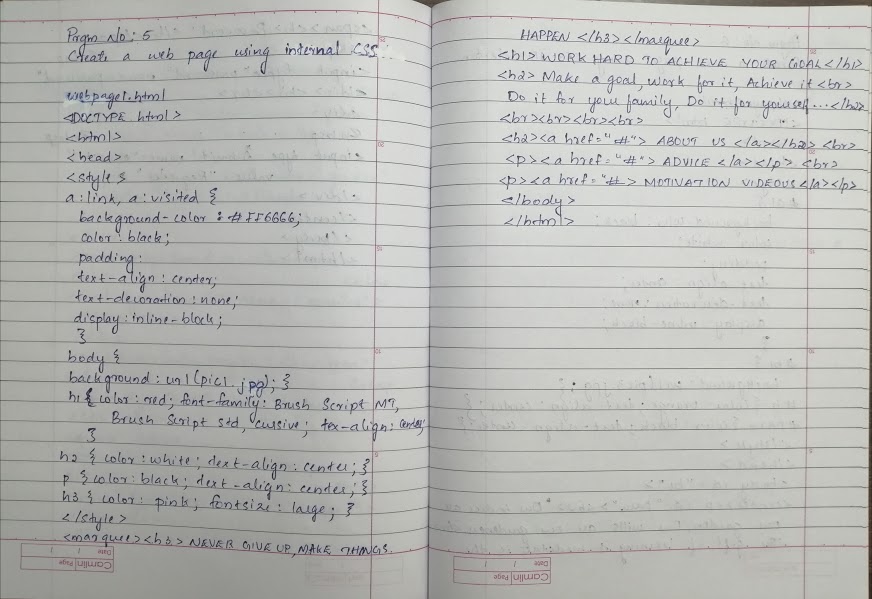 Prgm No: 5
Create a web page using internal CSS.
webpage1.html
<DOCTYPE html>
<html>
<head>
<style>
a:link, a:visited {
background-color: #FF6666;
color: black;
padding:
text-align: center;
text-decoration: none;
display: inline-block;
}
body {
background: url(pic1.jpg); }
h1 { color: red; font-family: Brush Script MT,
Brush Script std, cursive; tex-align: center;
}
h2 { color: white; text-align: center; }
p { color: black; text-align: center; }
h3 { color: pink; fontsize: large; }
</style>
<marquee><h3> NEVER GIVE UP, MAKE THINGS
Date / /
Camlin Page
HAPPEN </h3></marquee>
<h1> WORK HARD TO ACHIEVE YOUR GOAL</h1>
<h2> Make a goal, work for it, Achieve it <br>
Do it for your family, Do it for yourself...</h2>
<br><br><br><br>
<h2><a href="#"> ABOUT US </a></h2> <br>
<p><a href="#"> ADVICE </a></p> <br>
<p><a href="#> MOTIVATION VIDEOUS</a></p>
</body>
</html>
Date / /
Camlin Page